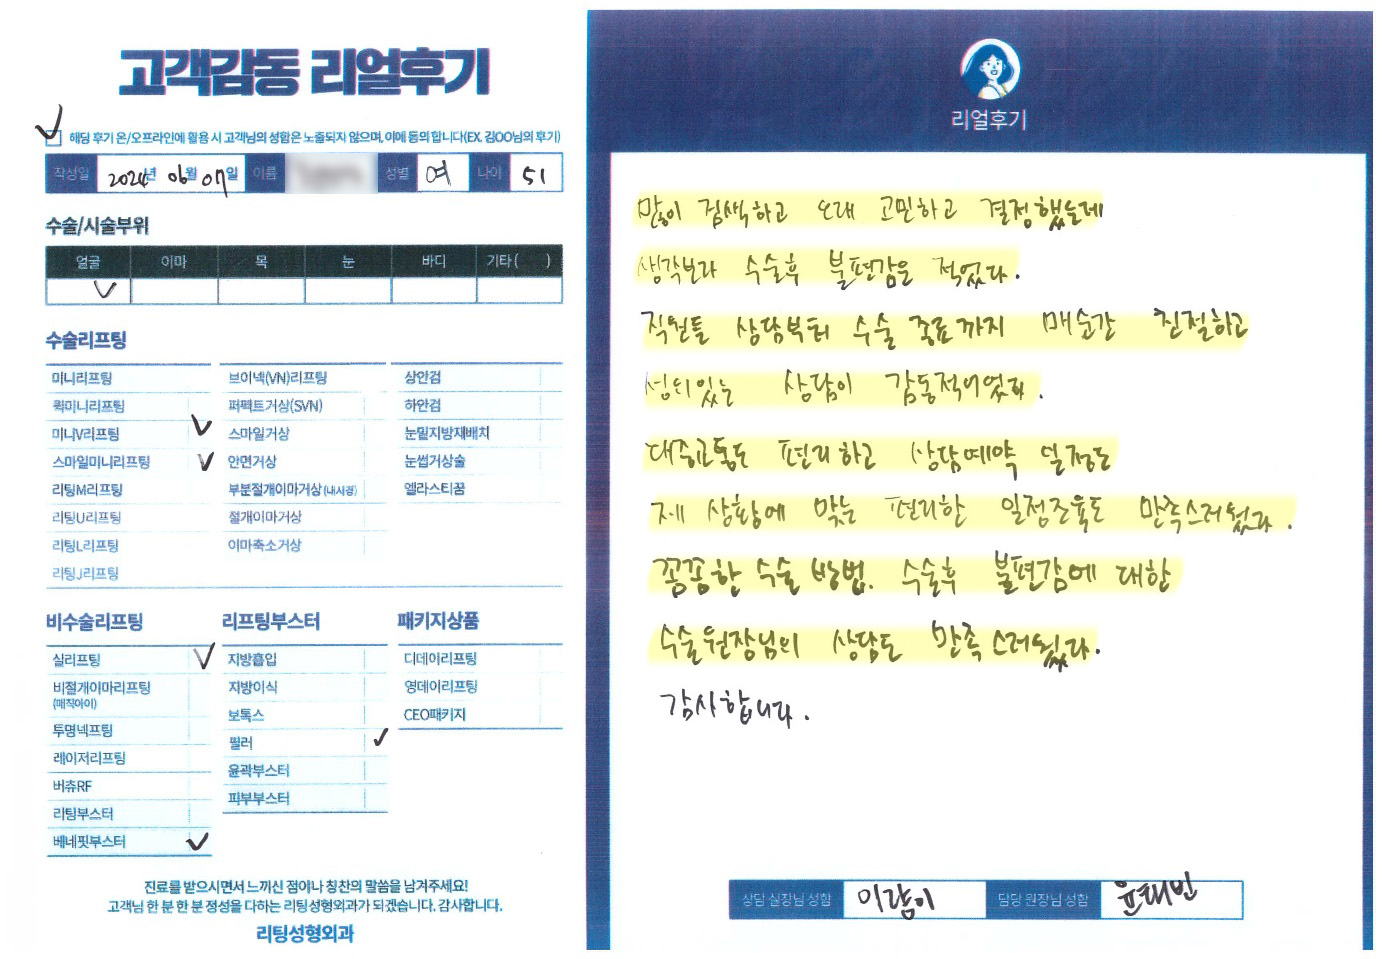 고객감동 리얼후기
✓ 해당 후기 온/오프라인에 활용 시 고객님의 성함은 노출되지 않으며, 이에 동의합니다(EX. 김OO님의 후기)
작성일 2024년 06월 07일 이름 성별 여 나이 51
수술/시술부위
얼굴 이마 목 눈 바디 기타( )
✓
수술리프팅
미니리프팅 브이넥(VN)리프팅 상안검
퀵미니리프팅 퍼펙트거상(SVN) 하안검
미니V리프팅 ✓ 스마일거상 눈밑지방재배치
스마일미니리프팅 ✓ 안면거상 눈썹거상술
리팅M리프팅 부분절개이마거상(내시경) 엘라스티꿈
리팅U리프팅 절개이마거상
리팅L리프팅 이마축소거상
리팅J리프팅
비수술리프팅
실리프팅 ✓
비절개이마리프팅
(매직아이)
투명넥프팅
레이저리프팅
버츄RF
리팅부스터
베네핏부스터 ✓
리프팅부스터
지방흡입
지방이식
보톡스
필러 ✓
윤곽부스터
피부부스터
패키지상품
디데이리프팅
영데이리프팅
CEO패키지
진료를 받으시면서 느끼신 점이나 칭찬의 말씀을 남겨주세요!
고객님 한 분 한 분 정성을 다하는 리팅성형외과가 되겠습니다. 감사합니다.
리팅성형외과
리얼후기
많이 검색하고 오래 고민하고 결정했는데
생각보다 수술후 불편감은 적었다.
직원들 상담부터 수술 종료까지 매순간 친절하고
성의있는 상담이 감동적이었다.
대중교통도 편리하고 상담예약 일정도
제 상황에 맞는 편리한 일정조율도 만족스러웠다.
꼼꼼한 수술 방법. 수술후 불편감에 대한
수술원장님의 상담도 만족스러웠다.
감사합니다.
상담 실장님 성함 이람이 담당 원장님 성함 윤태빈